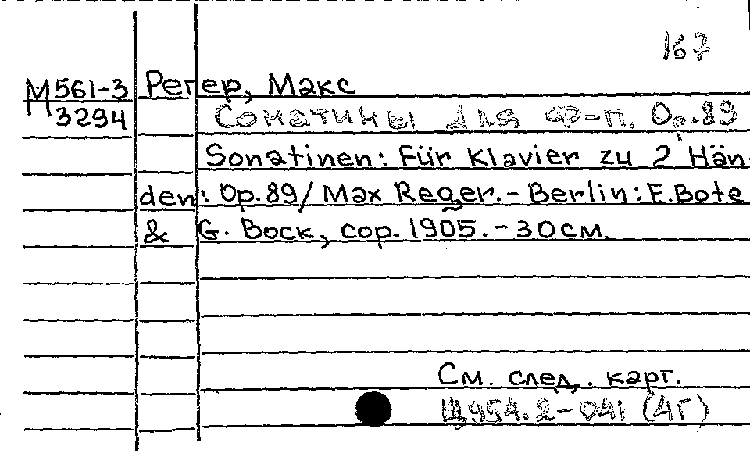 167
М561-3 Регер, Макс
3294 Сонатины для ф-п. Op.89
Sonatinen: Für Klavier zu 2 Hän-
den: Op.89/ Max Reger.- Berlin: E.Bote
& G. Bock, cop. 1905.- 30см.
См. след. карт.
Щ954.2-041 (4Г)